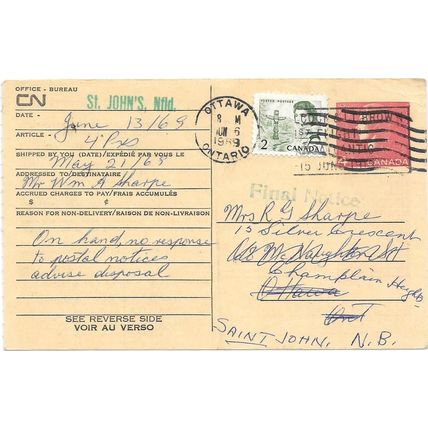 OFFICE - BUREAU
CN
St. JOHN'S, Nfld.
DATE - June 13/69
ARTICLE - 4 Pxs
SHIPPED BY YOU (DATE)/EXPÉDIÉ PAR VOUS LE
May 21/69
ADDRESSED TO/DESTINATAIRE
Mr Wm A Sharpe
ACCRUED CHARGES TO PAY/FRAIS ACCUMULÉS
$ ¢ $ ¢
REASON FOR NON-DELIVERY/RAISON DE NON-LIVRAISON
On hand, no response
to postal notices
advise disposal
SEE REVERSE SIDE
VOIR AU VERSO
OTTAWA
M
6
1969
ONTARIO
POSTES POSTAGE
2 CANADA
BROWN
1ST FLIGHT
15 JUN
4 CANADA
Final Notice
Mrs R G Sharpe
15 Silver Crescent
McNaughton
Champlain Heights
Ottawa
Ont
SAINT JOHN, N.B.